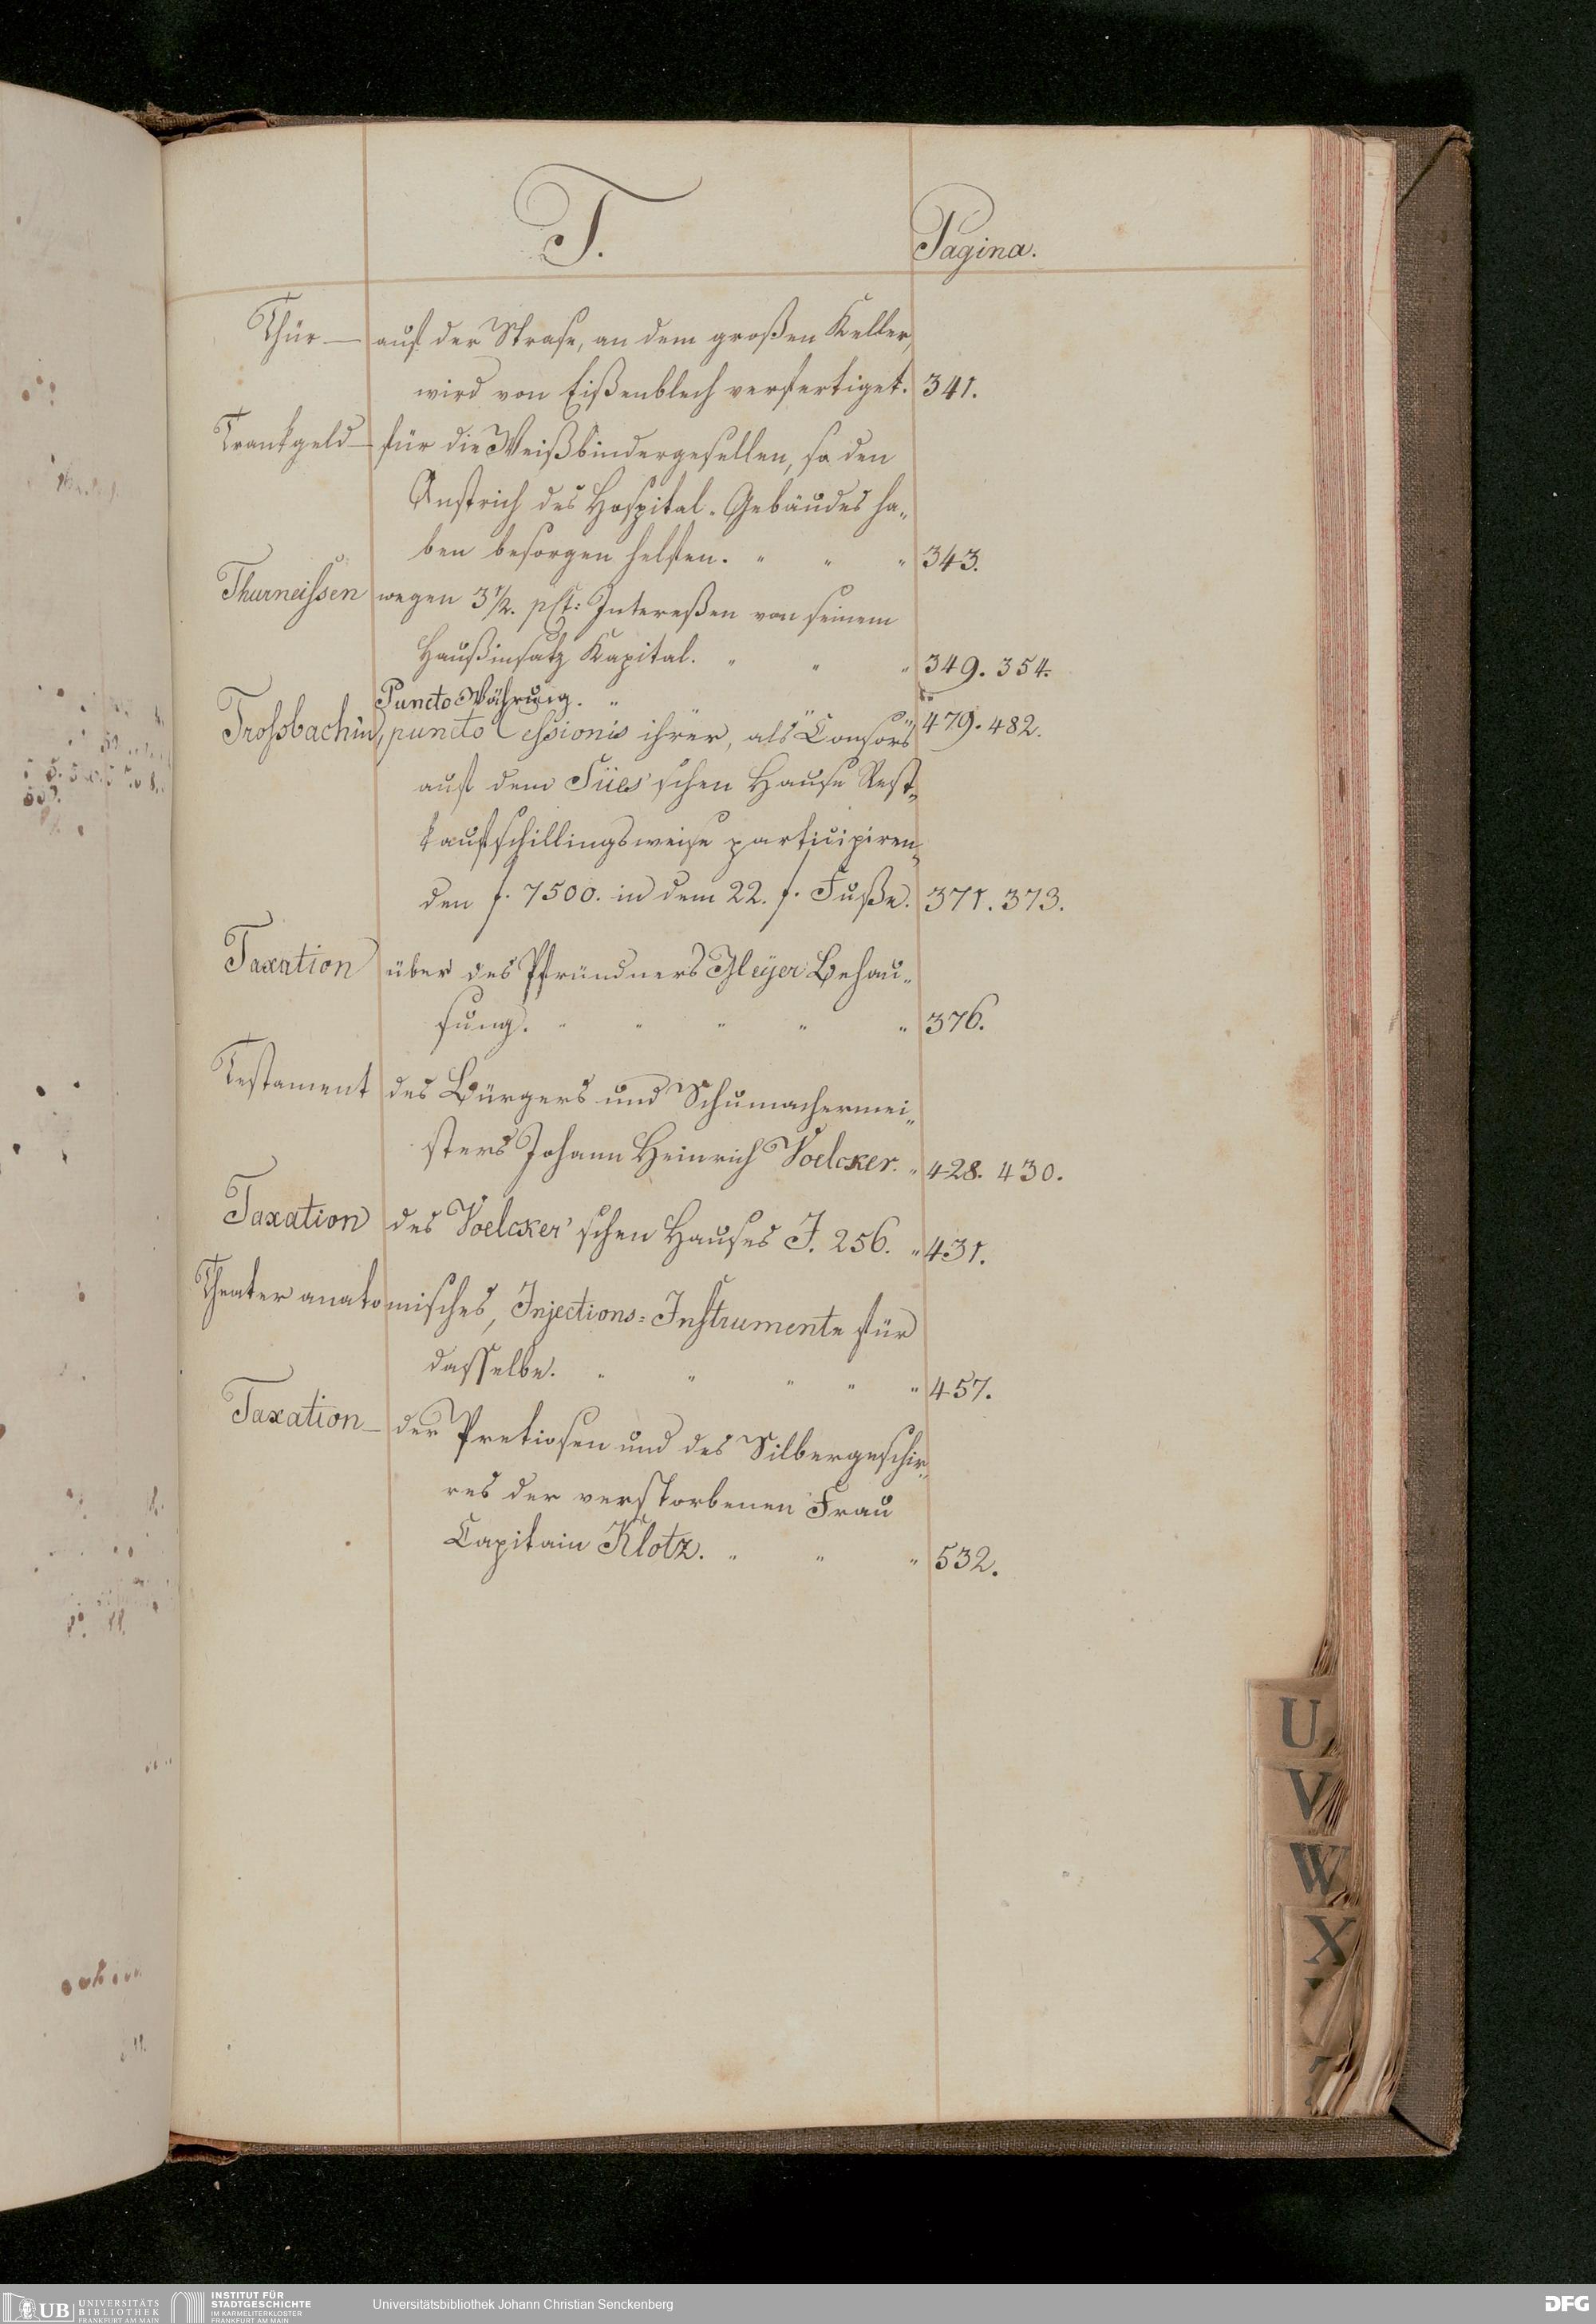 T.
Pagina.
Thür — auf der Straße, an dem großen Keller,
wird von Eißenblech verfertiget. 341.
Trankgeld — für die Weißbindergesellen, so den
Anstrich des Hospital-Gebäudes ha-
ben besorgen helfen. " " " 343.
Thurneissen wegen 3 1/2. pCt: Intereßen von seinem
Haußinsatz Kapital. " " " 349. 354.
Puncto Währung. " " " 479. 482.
Trossbachin, puncto Cessionis ihrer, als Consors
auf dem Sües'schen Hause Rest-
kaufschillingsweise participiren-
den f. 7500. in dem 22. f. Fuße. 371. 373.
Taxation über des Pfründners Gleyer Behau-
sung. " " " " " 376.
Testament des Bürgers und Schumachermei-
sters Johann Heinrich Voelcker. " 428. 430.
Taxation des Voelcker'schen Hauses J. 256. " 431.
Theater anatomisches, Injections-Instrumente für
dasselbe. " " " " " 457.
Taxation — der Pretiosen und des Silbergeschir-
res der verstorbenen Frau
Capitain Klotz. " " " 532.
U
V
W
X
UB UNIVERSITÄTS
BIBLIOTHEK
FRANKFURT AM MAIN
INSTITUT FÜR
STADTGESCHICHTE
IM KARMELITERKLOSTER
FRANKFURT AM MAIN
Universitätsbibliothek Johann Christian Senckenberg
DFG